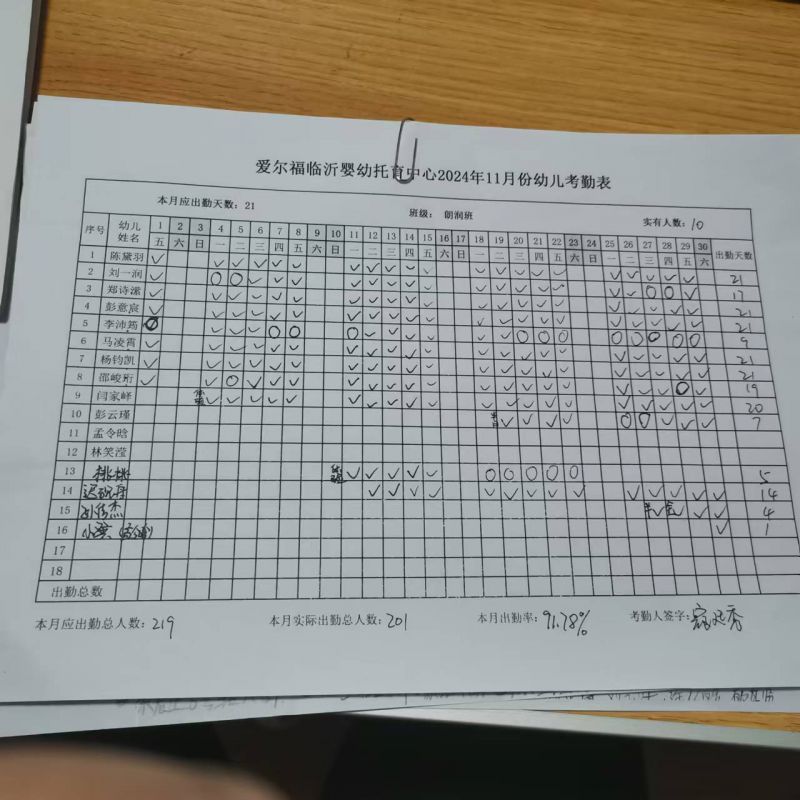 爱尔福临沂婴幼托育中心2024年11月份幼儿考勤表
本月应出勤天数：21 班级： 朗润班 实有人数：10
序号 幼儿姓名 1 2 3 4 5 6 7 8 9 10 11 12 13 14 15 16 17 18 19 20 21 22 23 24 25 26 27 28 29 30 出勤天数
五 六 日 一 二 三 四 五 六 日 一 二 三 四 五 六 日 一 二 三 四 五 六 日 一 二 三 四 五 六
1 陈黛羽 ✓ ✓ ✓ ✓ ✓ ✓ ✓ ✓ ✓ ✓ ✓ ✓ ✓ ✓ ✓ ✓ ✓ ✓ ✓ ✓ ✓ 21
2 刘一润 17
3 郑诗潆 21
4 彭意宸 21
5 李沛筠 9
6 马凌霄 21
7 杨钧凯 21
8 邵峻珩 19
9 闫家峰 20
10 彭云瑾 7
11 孟令晗
12 林笑滢
13 桃桃 5
14 14
15 4
16 1
17
18
出勤总数
本月应出勤总人数：219 本月实际出勤总人数：201 本月出勤率：91.78% 考勤人签字：